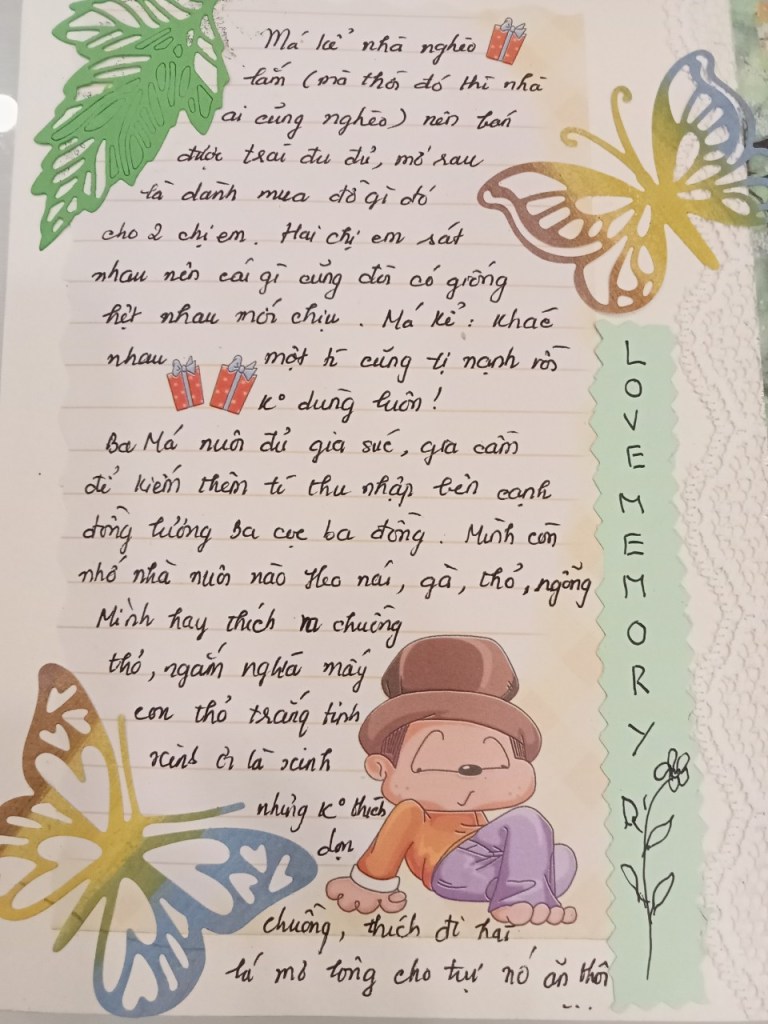 Má kể nhà nghèo
lắm (mà thời đó thì nhà
ai cũng nghèo) nên bán
được trái đu đủ, mớ rau
là dành mua đồ gì đó
cho 2 chị em. Hai chị em sát
nhau nên cái gì cũng đòi có giống
hệt nhau mới chịu. Má kể: Khác
nhau một tí cũng tị nạnh rồi
K° dùng luôn!
Ba Má nuôi đủ gia súc, gia cầm
để kiếm thêm tí thu nhập bên cạnh
đồng lương ba cọc ba đồng. Mình còn
nhớ nhà nuôi nào Heo nái, gà, thỏ, ngỗng
Mình hay thích ra chuồng
thỏ, ngắm nghía mấy
con thỏ trắng tinh
xinh ơi là xinh
nhưng K° thích
dọn
chuồng, thích đi hái
lá mơ lông cho tụi nó ăn thôi
...
LOVE MEMORY